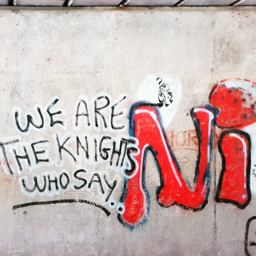 WE ARE
THE KNIGHTS
WHO SAY..
Ni